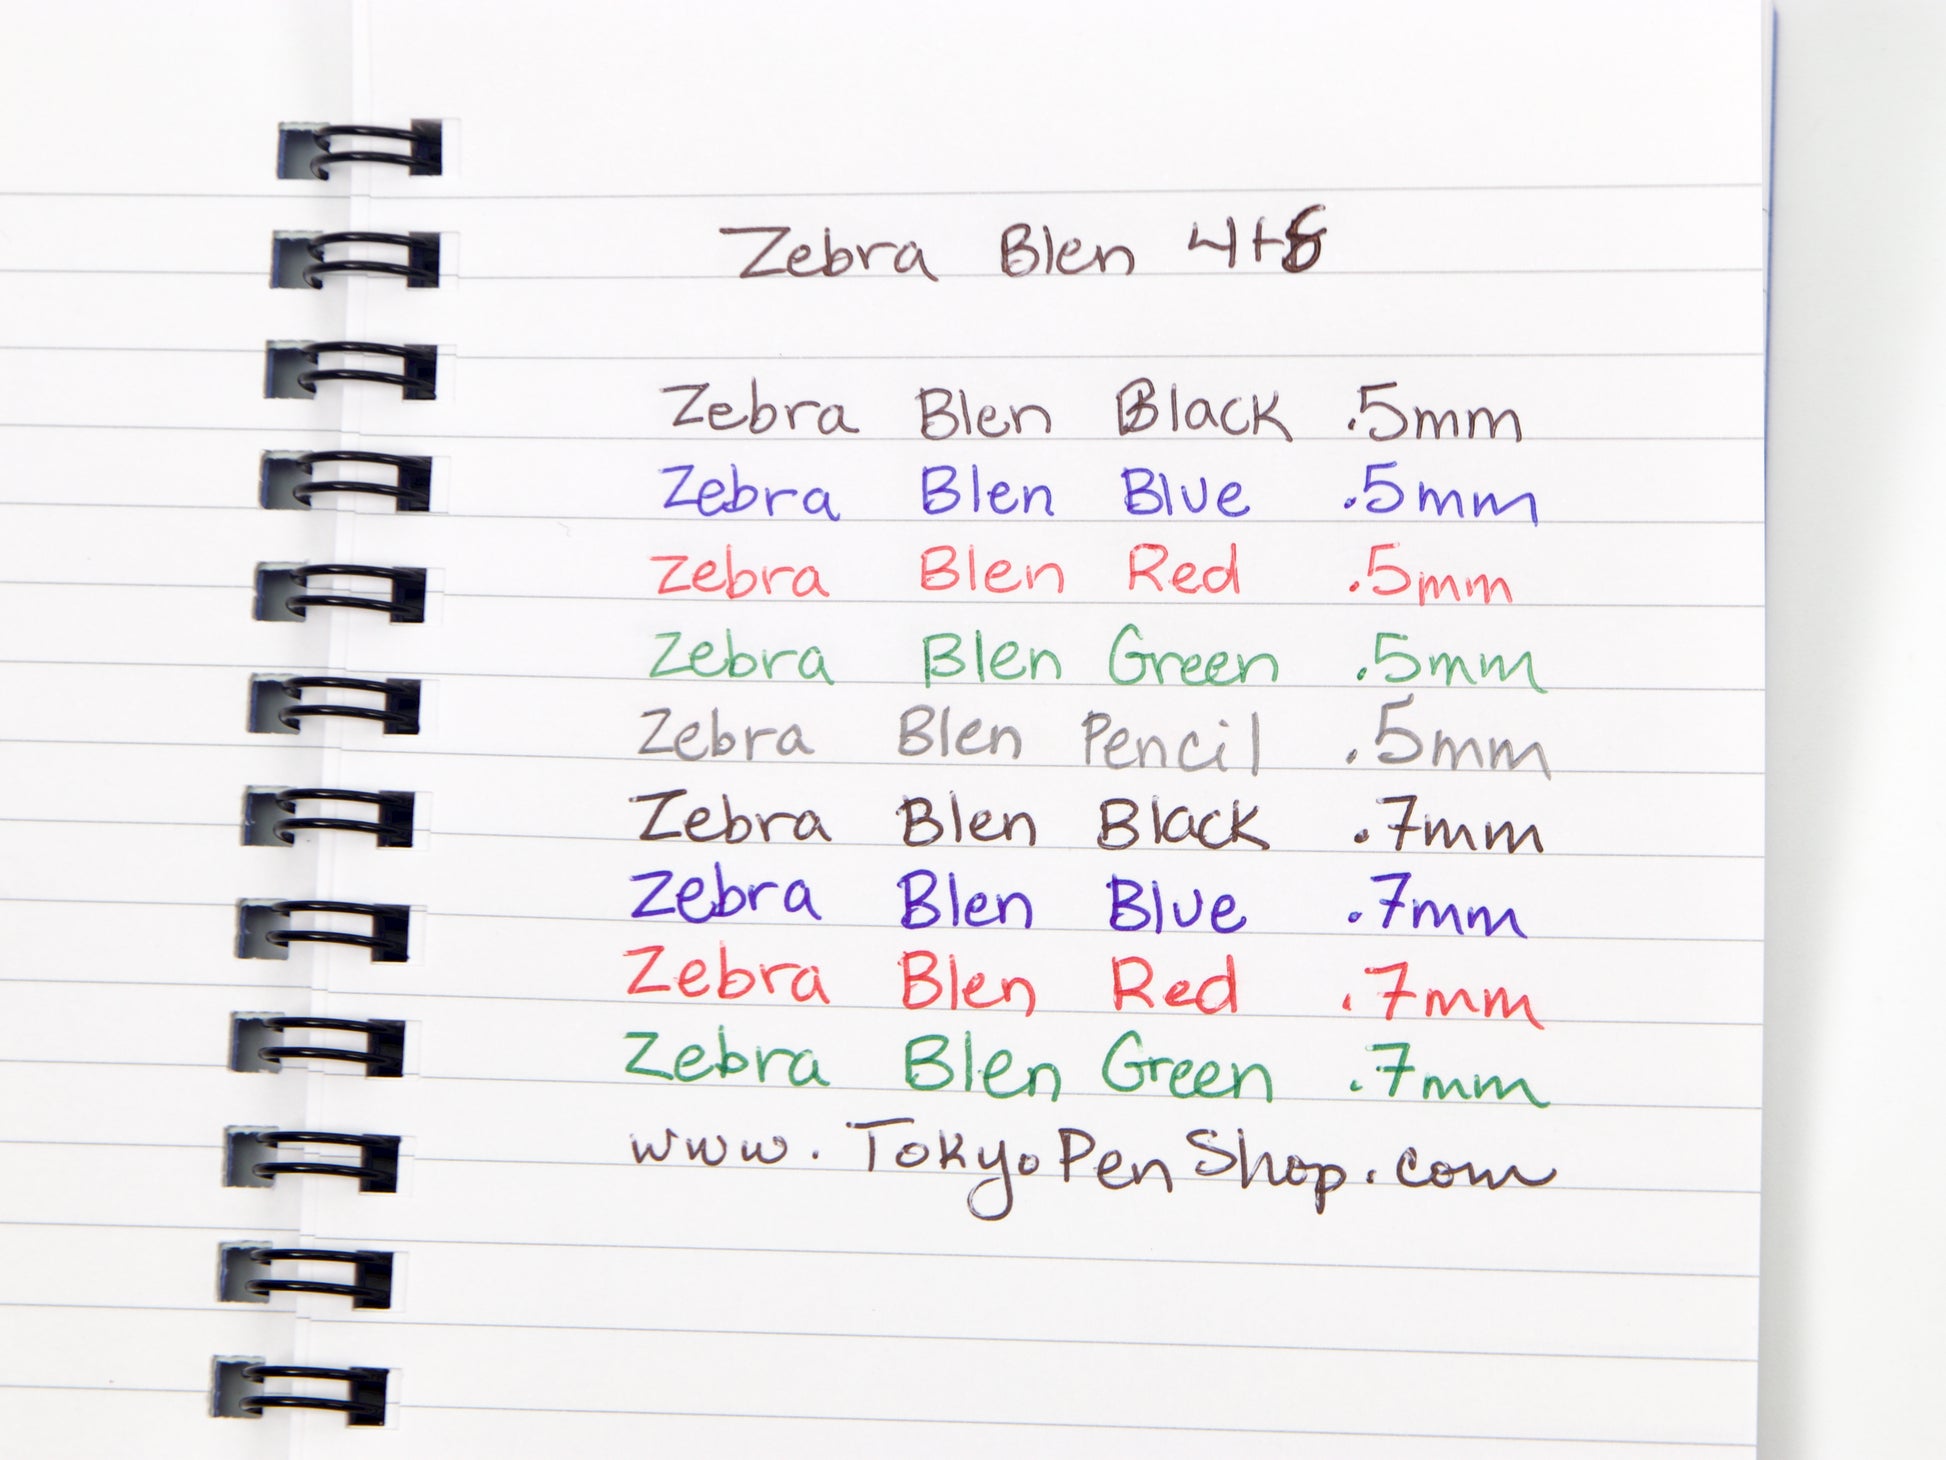 Zebra Blen 4+S
Zebra Blen Black .5mm
Zebra Blen Blue .5mm
Zebra Blen Red .5mm
Zebra Blen Green .5mm
Zebra Blen Pencil .5mm
Zebra Blen Black .7mm
Zebra Blen Blue .7mm
Zebra Blen Red .7mm
Zebra Blen Green .7mm
www.TokyoPenShop.com